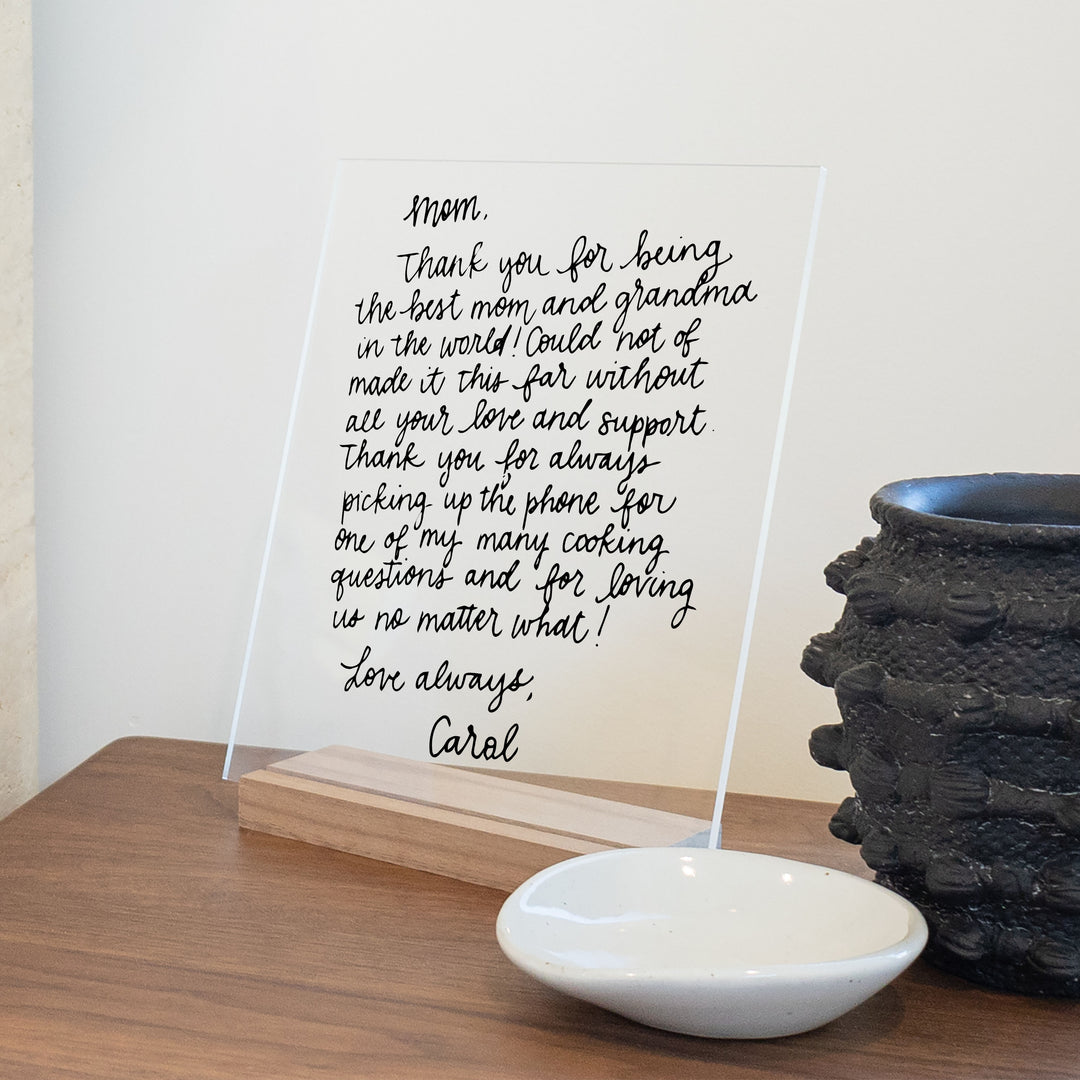 Mom,
Thank you for being
the best mom and grandma
in the world! Could not of
made it this far without
all your love and support.
Thank you for always
picking up the phone for
one of my many cooking
questions and for loving
us no matter what!
Love always,
Carol